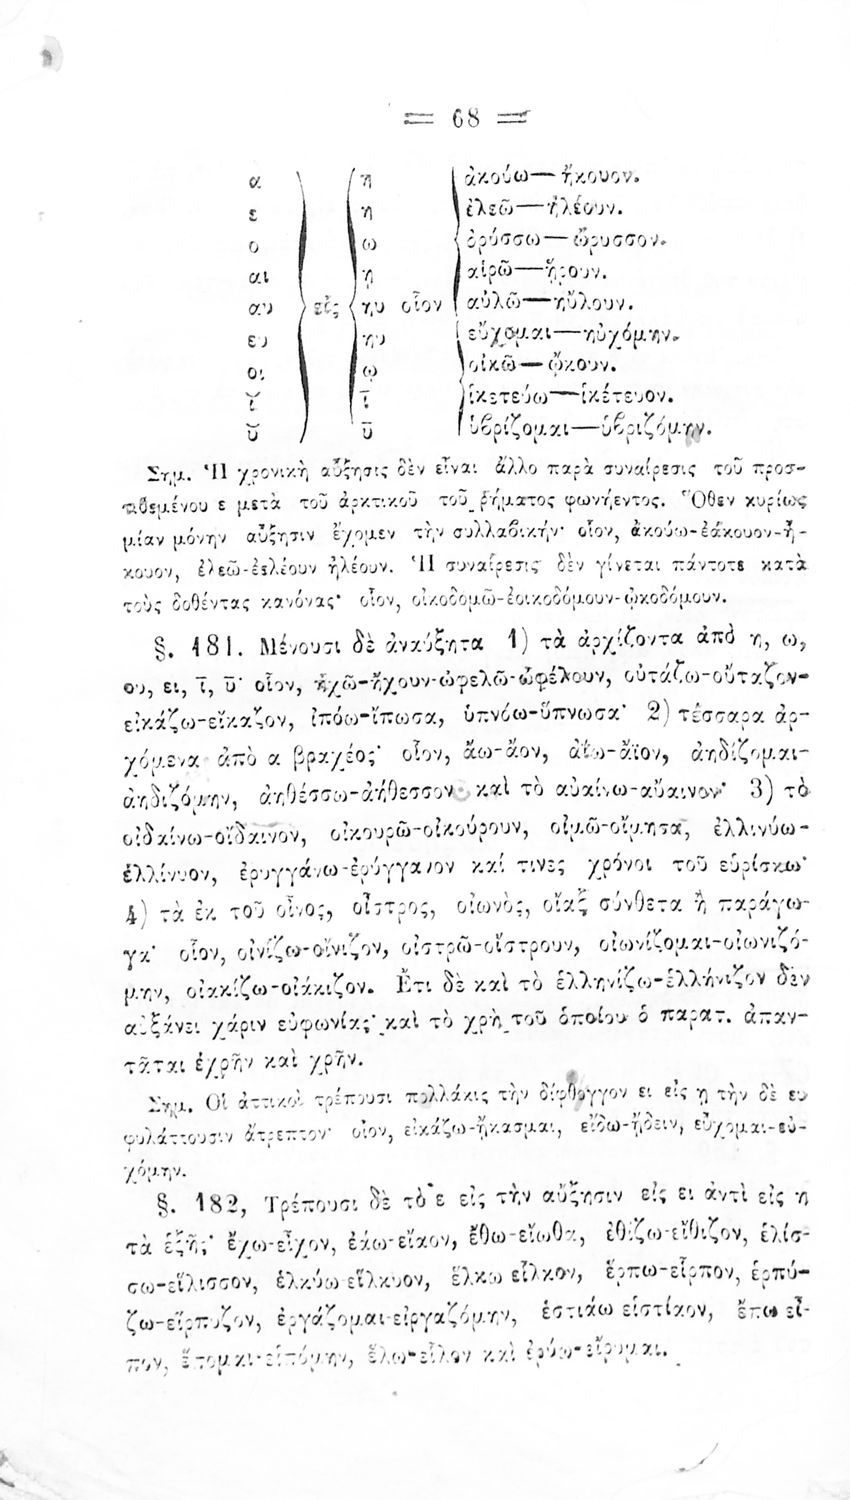 = 68 =
α η ἀκούω—ἤκουον.
ε η ἐλεῶ—ἠλέουν.
ο ω ὀρύσσω—ὤρυσσον.
αι ῃ αἱρῶ—ᾕρουν.
αυ εἰς ηυ οἷον αὐλῶ—ηὔλουν.
ευ ηυ εὔχομαι—ηὐχόμην.
οι ῳ οἰκῶ—ᾤκουν.
ῐ ῑ ἱκετεύω—ἱκέτευον.
ῠ ῡ ὑβρίζομαι—ὑβριζόμην.
Σημ. Ἡ χρονικὴ αὔξησις δὲν εἶναι ἄλλο παρὰ συναίρεσις τοῦ προσ-
τιθεμένου ε μετὰ τοῦ ἀρκτικοῦ τοῦ ῥήματος φωνήεντος. Ὅθεν κυρίως
μίαν μόνην αὔξησιν ἔχομεν τὴν συλλαβικήν· οἷον, ἀκούω-ἐάκουον-ἤ-
κουον, ἐλεῶ-ἐελέουν ἠλέουν. Ἡ συναίρεσις δὲν γίνεται πάντοτε κατὰ
τοὺς δοθέντας κανόνας· οἷον, οἰκοδομῶ-ἐοικοδόμουν-ᾠκοδόμουν.
§. 181. Μένουσι δὲ ἀναύξητα 1) τὰ ἀρχίζοντα ἀπὸ η, ω,
ου, ει, ῑ, ῡ· οἷον, ἠχῶ-ἤχουν-ὠφελῶ-ὠφέλουν, οὐτάζω-οὔταζον-
εἰκάζω-εἴκαζον, ἰπόω-ἴπωσα, ὑπνόω-ὕπνωσα· 2) τέσσαρα ἀρ-
χόμενα ἀπὸ α βραχέος· οἷον, ἄω-ἄον, ἀΐω-ἄϊον, ἀηδίζομαι-
ἀηδιζόμην, ἀηθέσσω-ἀήθεσσον καὶ τὸ αὐαίνω-αὔαινον· 3) τὸ
οἰδαίνω-οἴδαινον, οἰκουρῶ-οἰκούρουν, οἰμῶ-οἴμησα, ἐλλινύω-
ἐλλίνυον, ἐρυγγάνω-ἐρύγγανον καί τινες χρόνοι τοῦ εὑρίσκω·
4) τὰ ἐκ τοῦ οἶνος, οἶστρος, οἰωνὸς, οἴαξ σύνθετα ἢ παράγω-
γα· οἷον, οἰνίζω-οἴνιζον, οἰστρῶ-οἴστρουν, οἰωνίζομαι-οἰωνιζό-
μην, οἰακίζω-οἰάκιζον. Ἔτι δὲ καὶ τὸ ἑλληνίζω-ἑλλήνιζον δὲν
αὐξάνει χάριν εὐφωνίας· καὶ τὸ χρὴ τοῦ ὁποίου ὁ παρατ. ἀπαν-
τᾶται ἐχρῆν καὶ χρῆν.
Σημ. Οἱ ἀττικοὶ τρέπουσι πολλάκις τὴν δίφθογγον ει εἰς ῃ τὴν δὲ ευ
φυλάττουσιν ἄτρεπτον· οἷον, εἰκάζω-ᾔκασμαι, εἴδω-ᾔδειν, εὔχομαι-εὐ-
χόμην.
§. 182, Τρέπουσι δὲ τὸ ε εἰς τὴν αὔξησιν εἰς ει ἀντὶ εἰς η
τὰ ἑξῆς· ἔχω-εἶχον, ἐάω-εἴαον, ἔθω-εἴωθα, ἐθίζω-εἴθιζον, ἑλίσ-
σω-εἵλισσον, ἑλκύω εἵλκυον, ἕλκω εἷλκον, ἕρπω-εἷρπον, ἑρπύ-
ζω-εἵρπυζον, ἐργάζομαι-εἰργαζόμην, ἑστιάω εἱστίαον, ἔπω εἶ-
πον, ἕπομαι-εἱπόμην, ἕλω-εἷλον καὶ ἐρύω-εἴρυμαι.